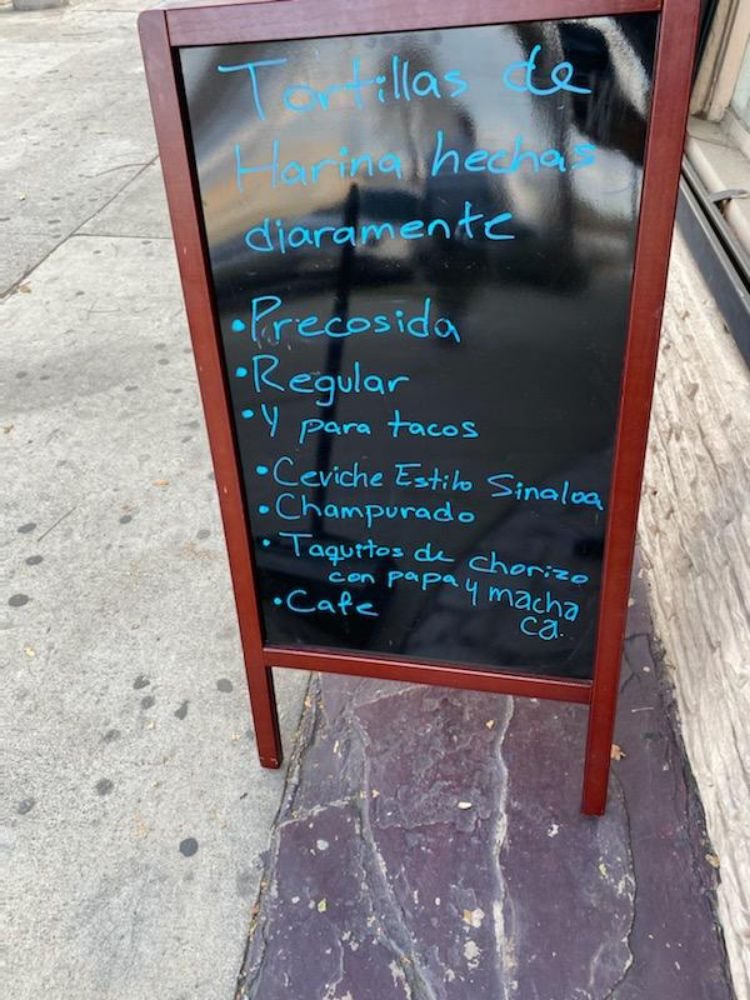 Tortillas de
Harina hechas
diaramente
• Precosida
• Regular
• Y para tacos
• Ceviche Estilo Sinaloa
• Champurado
• Taquitos de chorizo
con papa y macha
ca.
• Cafe